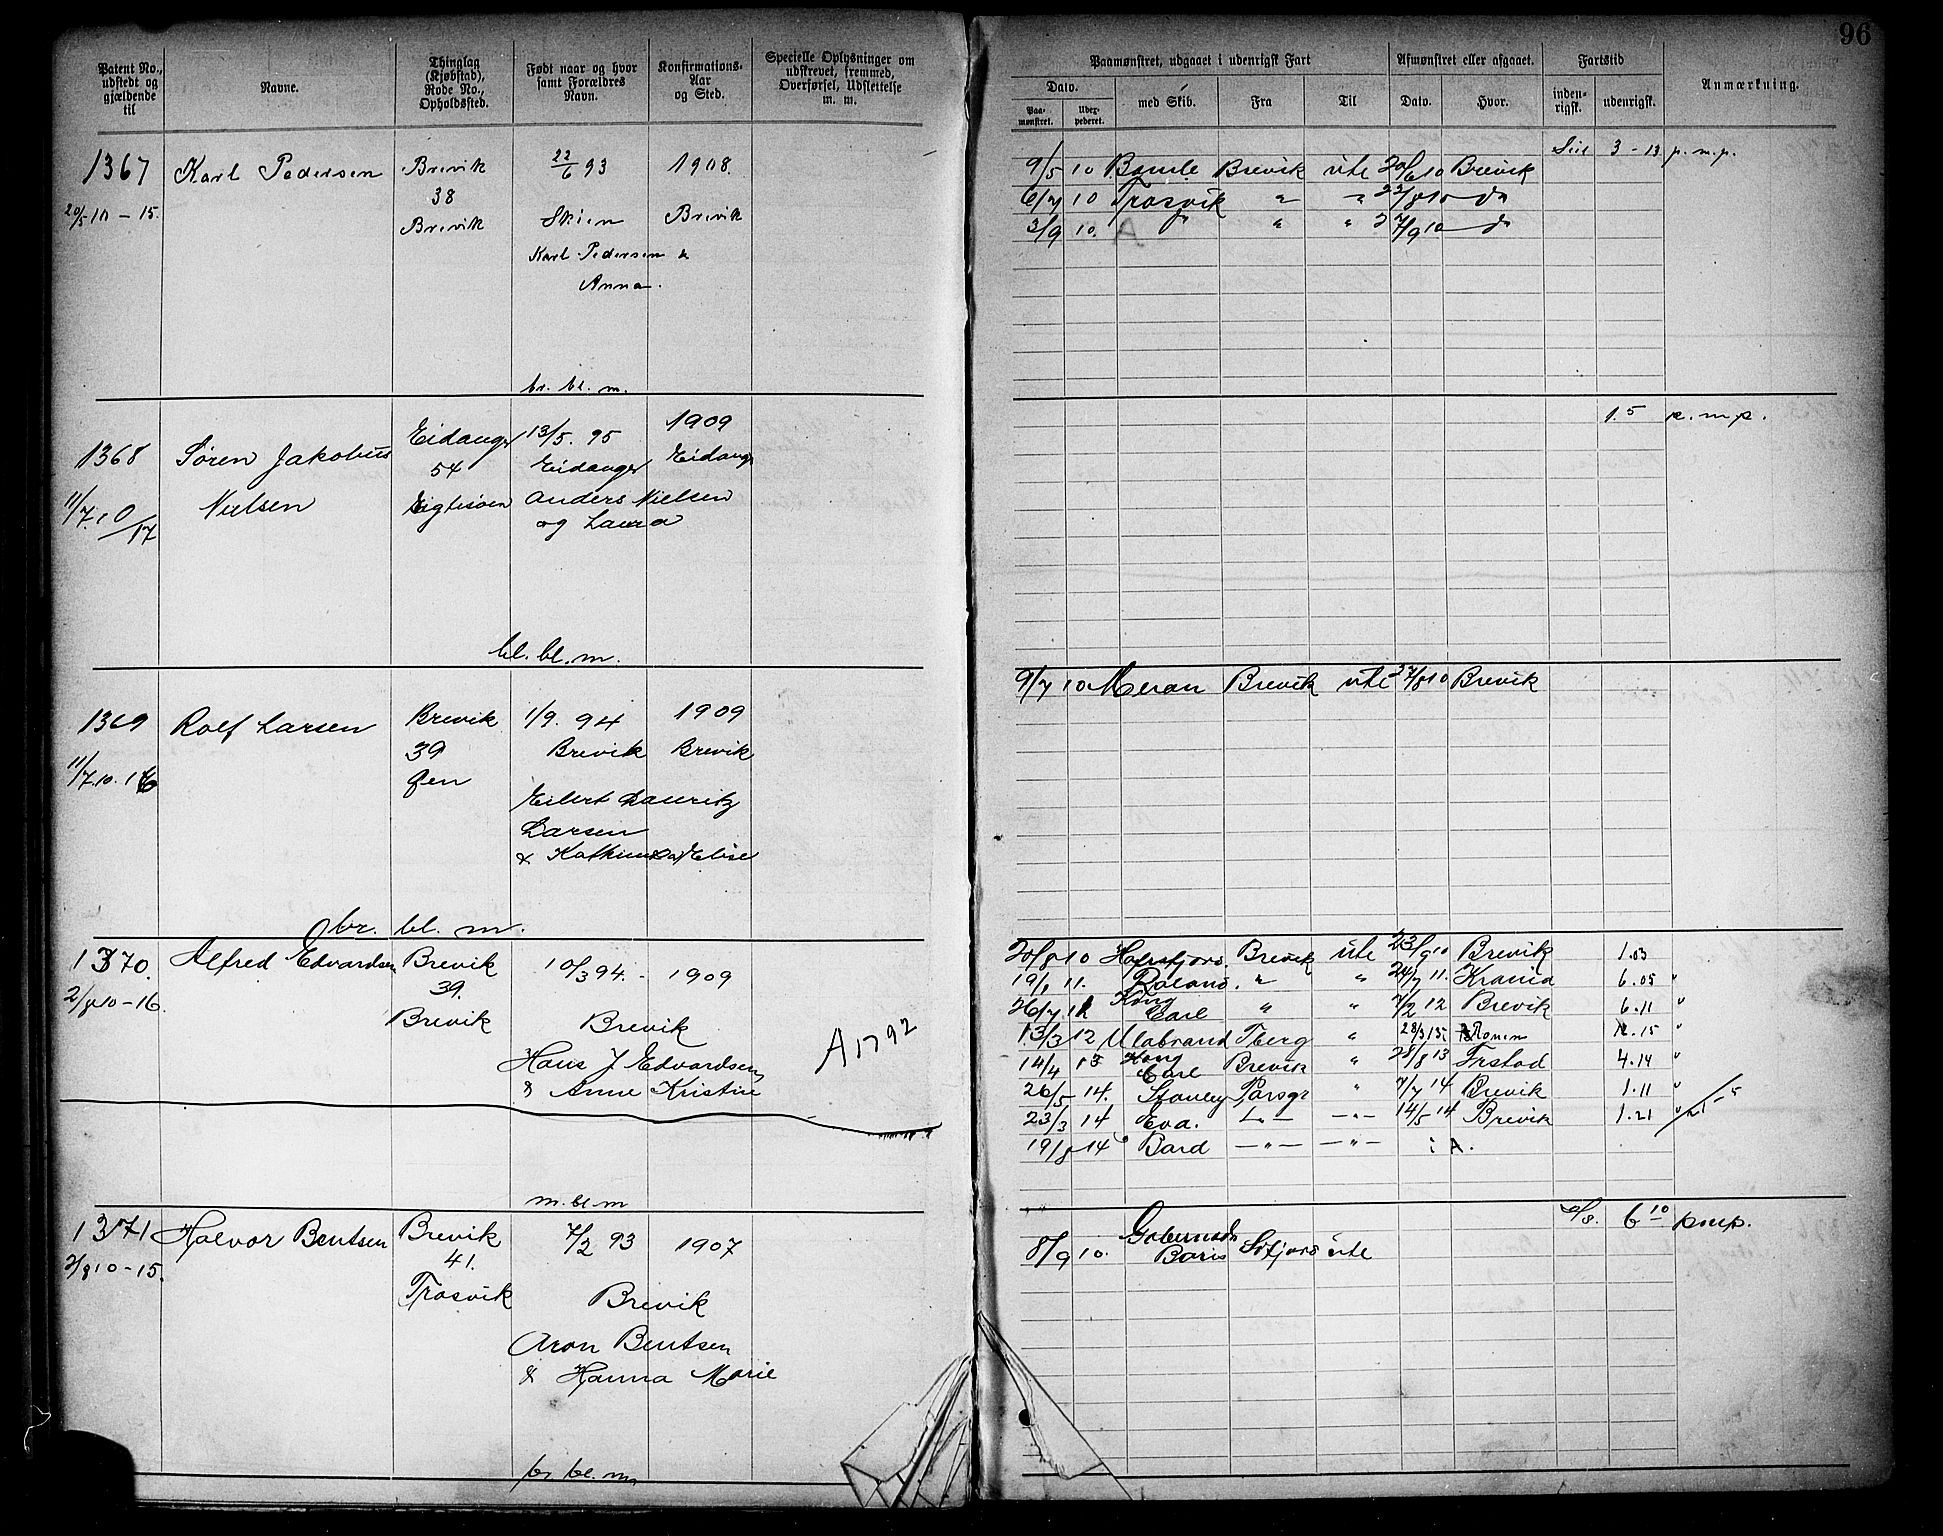 96
Patent No., udstedt og gjældende til
Navne.
Thinglag (Kjøbstad), Rode No., Opholdssted.
Født naar og hvor samt Forældres Navn.
Konfirmations-Aar og Sted.
Specielle Oplysninger om udskrevet, fremmed, Overførsel, Udslettelse m. m.
Paamønstret, udgaaet i udenrigsk Fart
Afmønstret eller afgaaet.
Fartstid
Anmærkning.
Dato.
Paa-mønstret.
med Skib.
Fra
Til
Dato.
Hvor.
inden-rigsk.
udenrigsk.
1367 Karl Pedersen Brevik 22/6 93 1908.
38
20/5 10 - 15. Brevik Skien Brevik
Karl Pedersen &
Anna.
br. bl. m.
3 - 13 p.m.p.
9/5 10 Bamle Brevik ute 20/6 10 Brevik
6/7 10 Trosvik " " 22/8 10 do
3/9 10. " " 27/9 10 do
A
1368 Søren Jakobus Eidanger 13/5. 95 1909
54 Eidanger Eidang
11/7.10/17 Nielsen Anders Nielsen
og Laura
bl. bl. m.
1.5 p.m.p.
1369 Rolf Larsen Brevik 1/9. 94 1909
39 Brevik Brevik
11/7.10. 16 Øen
Eilert Lauritz
Larsen
br. bl. m.
9/7 10 Meran Brevik ute 27/8 10 Brevik
1370. Alfred Edvardsen Brevik 10/3 94. - 1909
39.
2/8 10 - 16. Brevik Brevik
Hans J Edvardsen
& Anne Kristine
A 1792
m. bl. m
20/8 10 Brevik ute 23/9 10 Brevik 1.03
19/1 11. Roland. " " 24/7 11. Krania 6.05 "
26/7 11 Kong Carl " " 7/2 12 Brevik 6.11 "
13/3 12 Ulabrand Tberg " 15 "
14/4 13 Kong Carl Brevik " 28/8 13 Frstad 4.14 "
26/5 14. Stanley Porsgr " 7/7 14 Brevik 1.11 "
23/3 14 Eva. - " - - " - 14/5 14 Brevik 1.21 "
19/8 14 Bard - " - - " - i A.
1371 Halvor Bentsen Brevik 7/2 93 1907
41.
2/8 10 - 15. Trosvik Brevik
Aron Bentsen
& Hanna Marie
br. bl. m.
6 10 pmp.
8/9 10. Boris ute